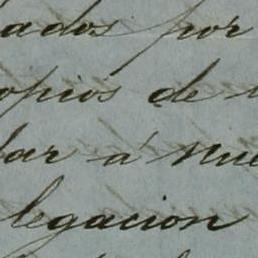 ados por
opios de
dar á nue
legacion